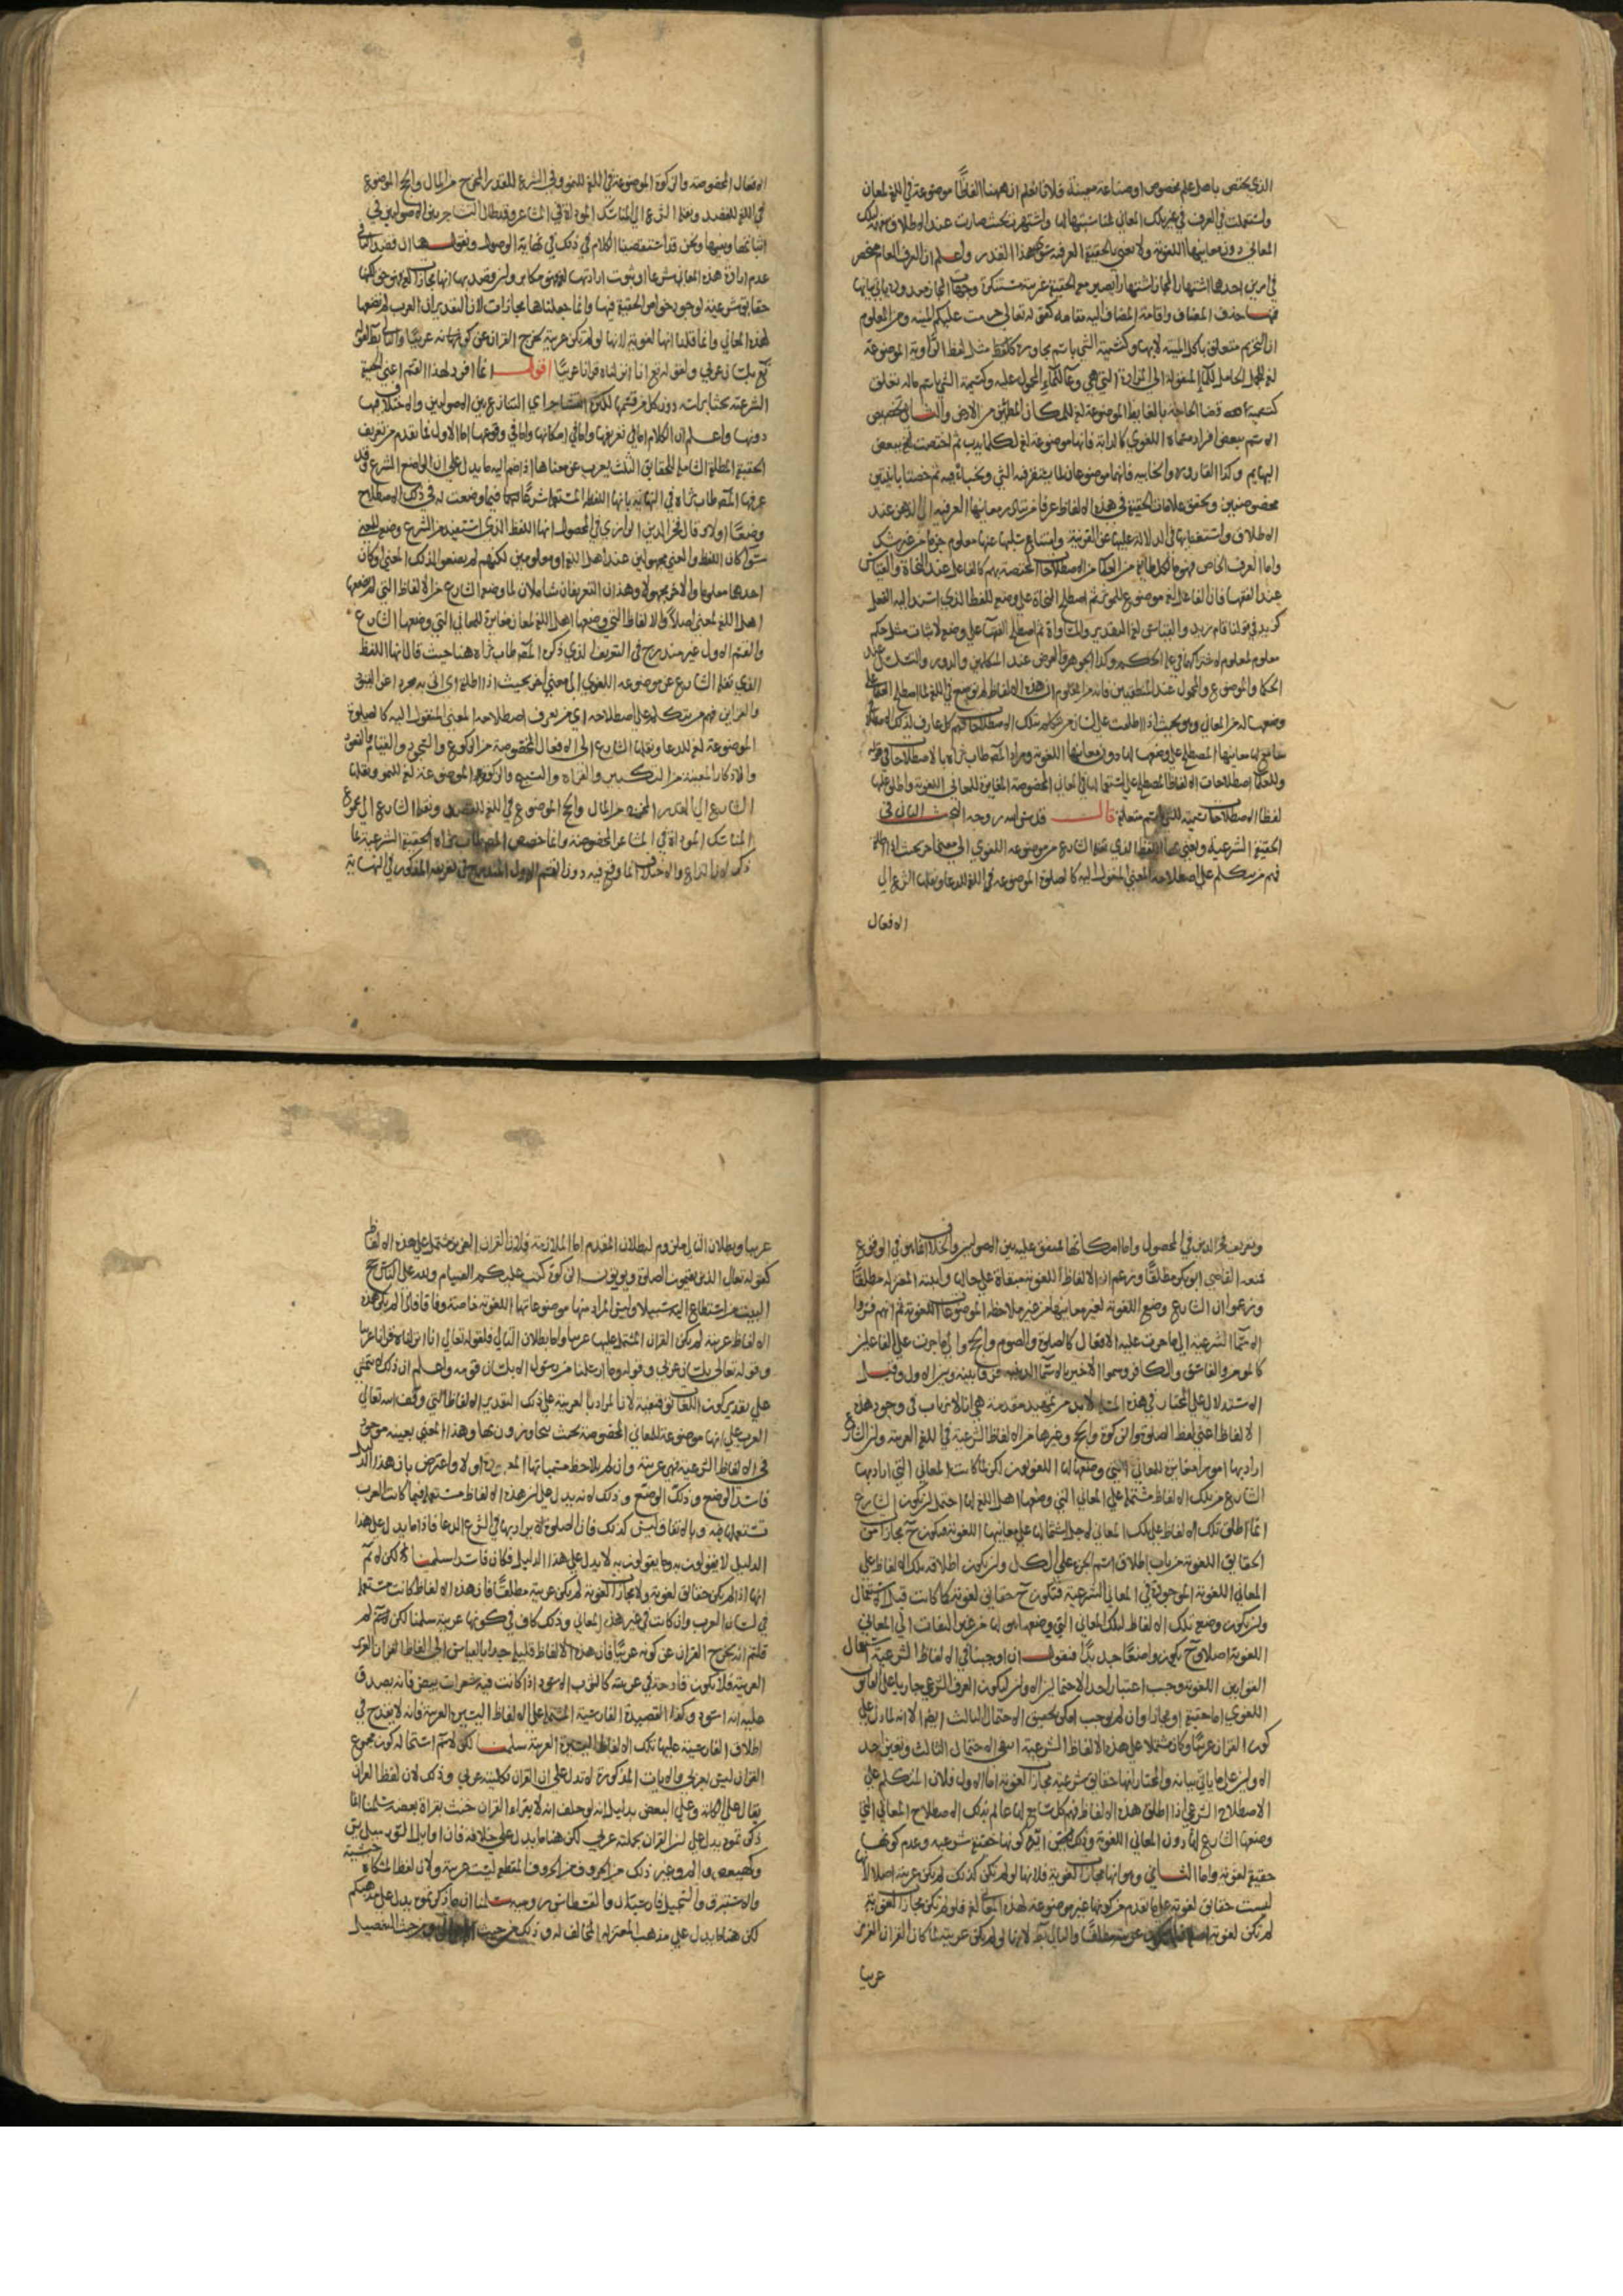 الذي يختص باصل علم مخصوص او صناعة معينة فلانا نعلم ان ههنا الفاظا موضوعة في اللغة لمعان
واستعملت في العرف في غير تلك المعاني لمناسبتها لها واشتهرت بحيث صارت عند الاطلاق يفهم تلك
المعاني دون معانيها اللغوية ولا نعني بالحقيقة العرفية سوى هذا القدر واعلم ان العرف العام منحصر
في امرين احدهما اشتهار المجاز اشتهارا يصير معه الحقيقة عرفية مستنكرة وجهات المجاز معدودة ياتي بيانها
فمنها حذف المضاف واقامة المضاف اليه مقامه كقوله تعالى حرمت عليكم الميتة ومن المعلوم
ان التحريم متعلق باكل الميتة لا بها وكتسمية الشي باسم مجاوره كلفظ مثل لفظ الراوية الموضوعة
لغة للجمل الحامل للماء المنقولة الى المزادة التي هي وعاء للماء المحمول عليه وكتسمية الشي باسم ماله به تعلق
كتسمية قضا الحاجة بالغايط الموضوعة لغة للمكان المطمئن من الارض والثاني تخصيص
الاسم ببعض افراد مسماه اللغوي كالدابة فانها موضوعة لغة لكل ما يدب ثم اختصت ببعض
البهايم وكذا القارورة والخابية فانهما موضوعان لما يستقر فيه الشي ويخبأ فيه ثم خصتا بانيتين
مخصوصتين وتحقق علامات الحقيقة في هذه الالفاظ عرفا من تبادر معانيها العرفية الى الذهن عند
الاطلاق واستغنايها في الدلالة عليها عن القرينة وامتناع سلبها عنها معلوم جزما من غير شك
واما العرف الخاص فهو ما لكل طايفة من العلماء من الاصطلاحات المختصة بهم كالفاعل عند النحاة والقياس
عند الفقها فان الفاعل لغة موضوع للموثر ثم اصطلح النحاة على وضعه للفظ الذي اسند اليه الفعل
كزيد في قولنا قام زيد والقياس لغة التقدير والمساواة ثم اصطلح الفقها على وضعه لاثبات مثل حكم
معلوم لمعلوم لاشتراكهما في علة الحكم وكذا الجوهر والعرض عند المتكلمين والدور والتسلسل عند
الحكما والموضوع والمحمول عند المنطقيين فانه من المعلوم ان هذه الالفاظ لم توضع في اللغة لما اصطلح العلما على
وضعها له من المعاني وهو بحيث اذا اطلقت على لسان من تكلم بتلك الاصطلاحات فهم كل عارف لذلك الاصطلاح
سامع لها معانيها المصطلح على وضعها لها دون معانيها اللغوية ومراد المص طاب ثراه بالاصطلاحات في قوله
وللعلما اصطلاحات الالفاظ المصطلح على استعمالها في المعاني المخصوصة المغايرة للمعاني اللغوية واطلق عليها
لفظ الاصطلاحات تسمية للشي باسم متعلقه قال قدس الله روحه البحث الثاني في
الحقيقة الشرعية ونعني بها اللفظ الذي نقله الشارع من موضوعه اللغوي الى معنى اخر بحيث اذا اطلق
فهم من يتكلم على اصطلاحه المعنى المنقول اليه كالصلوة الموضوعة في اللغة للدعا ونقلها الشرع الى
الافعال
الافعال المخصوصة والزكوة الموضوعة في اللغة للنمو وفي الشرع للقدر المخرج من المال والحج الموضوع
في اللغة للقصد ونقله الشرع الى المناسك الموداة في المشاعر وقد طال التشاجر بين الاصوليين في
اثباتها ونفيها ونحن قد استقصينا الكلام في ذلك في نهاية الوصول ونقول ههنا ان قصد النافي
عدم ارادة هذه المعاني شرعا او ثبوت ارادتها لغة فهو مكابر وان قصد بها انها مجازات لغوية فهو حق لكنها
حقايق شرعية لوجود خواص الحقيقة فيها وانما جعلناها مجازات لان التقدير ان العرب لم تضعها
لهذه المعاني وانما قلنا انها لغوية لانها لو لم تكن عربية لخرج القران عن كونه عربيا والتالي بط لقوله
تع بلسان عربي ولقوله تع انا انزلناه قرانا عربيا اقول انما افرد لهذا القسم اعني الحقيقة
الشرعية بحثا براسه دون كل من قسيميها لكثرة التشاجر اي التنازع بين الاصوليين والاختلاف فيها
دونهما واعلم ان الكلام اما في تعريفها واما في امكانها واما في وقوعها اما الاول فما تقدم من تعريف
الحقيقة المطلقة الشاملة للحقايق الثلث يعرب عن معناها اذا ضم اليه ما يدل على ان الواضع الشرع وقد
عرفها المص طاب ثراه في النهاية بانها اللفظ المستعمل شرعا فيما وضعت له في ذلك الاصطلاح
وضعا اولا وقال فخر الدين الرازي في المحصول انها اللفظ الذي استفيد من الشرع وضعه للمعنى
سوا كان اللفظ والمعنى مجهولين عند اهل اللغة او معلومين لكنهم لم يضعوا لذلك المعنى او كان
احدهما معلوما والاخر مجهولا وهذان التعريفان شاملان لما وضعه الشارع من الالفاظ التي لم يضعها
اهل اللغة لمعنى اصلا والالفاظ التي وضعها اهل اللغة لمعان مغايرة للمعاني التي وضعها الشارع
والقسم الاول غير مندرج في التعريف الذي ذكره المص طاب ثراه هنا حيث قال انها اللفظ
الذي نقله الشارع عن موضوعه اللغوي الى معنى اخر بحيث اذا اطلق اي اتي به مجردا عن القيود
والقراين فهم من يتكلم على اصطلاحه اي من يعرف اصطلاحه المعنى المنقول اليه كالصلوة
الموضوعة لغة للدعا ونقلها الشارع الى الافعال المخصوصة من الركوع والسجود والقيام والقعود
والاذكار المعينة من التكبير والقراءة والتسبيح والزكوة الموضوعة لغة للنمو ونقلها
الشارع الى القدر المخرج من المال والحج الموضوع في اللغة للقصد ونقله الشارع الى مجموع
المناسك الموداة في المشاعر المخصوصة وانما خصص المص طاب ثراه الحقيقة الشرعية بما
ذكره لان النزاع والاختلاف انما وقع فيه دون القسم الاول المندرج في تعريفه المذكور في النهاية
وتعريف فخر الدين في المحصول واما امكانها فمتفق عليه بين الاصوليين والخلاف انما هو في الوقوع
فمنعه القاضي ابو بكر مطلقا وزعم ان الالفاظ اللغوية مبقاة على حالها واثبته المعتزلة مطلقا
وزعموا ان الشارع وضع اللغوية لغير معانيها من غير ملاحظة الموضوعات اللغوية ثم انهم قسموا
الاسما الشرعية الى ما جرت عليه الافعال كالصلوة والصوم والحج والى ما جرت على الفاعلين
كالمومن والفاسق والكافر وسموا الاخير بالاسما الدينية فرقا بينه وبين الاول وقبل
الاستدلال على المختار في هذه المسئلة لابد من تمهيد مقدمة هي انا لا نرتاب في وجود هذه
الالفاظ اعني لفظ الصلوة والزكوة والحج وغيرها من الالفاظ الشرعية في اللغة العربية وان الشارع
اراد بها امورا مغايرة للمعاني التي وضعها لها اللغويون لكن لما كانت المعاني التي ارادها
الشارع من تلك الالفاظ مشتملة على المعاني التي وضعها اهل اللغة لها احتمل ان يكون الشارع
انما اطلق تلك الالفاظ على تلك المعاني لاجل اشتمالها على معانيها اللغوية فيكون ح مجازا من
الحقايق اللغوية من باب اطلاق اسم الجزء على الكل وان يكون اطلاقه تلك الالفاظ على
المعاني اللغوية الموجودة في المعاني الشرعية فتكون ح حقايق لغوية كما كانت قبل الاستعمال
وان يكون وضع تلك الالفاظ لتلك المعاني التي وضعها هو لها من غير التفات الى المعاني
اللغوية اصلا وح يكون واضعا جديدا فنقول ان اوجبنا في الالفاظ الشرعية استعمال
القوانين اللغوية وجب اعتبار احد الاحتمالين الاولين ليكون العرف الشرعي جاريا على القانون
اللغوي اما حقيقة او مجازا وان لم يوجب امكن تحقيق الاحتمال الثالث ايضا الا انه لما دل على
كون القران عربيا وكان مشتملا على هذه الالفاظ الشرعية انتفى الاحتمال الثالث وتعين احد
الاولين على ما ياتي بيانه والمختار انها حقايق شرعية مجازات لغوية اما الاول فلان المتكلم على
الاصطلاح الشرعي اذا اطلق هذه الالفاظ فهم كل سامع لها عالم بتلك الاصطلاح المعاني التي
وضعها الشارع لها دون المعاني اللغوية وذلك يقتضي كونها حقيقة شرعية وعدم كونها
حقيقة لغوية واما الثاني وهو انها مجازات لغوية فلانها لو لم تكن كذلك لم تكن عربية اصلا لانها
ليست حقايق لغوية على ما تقدم من كونها غير موضوعة لهذه المعاني لغة فلو لم تكن مجازات لغوية
لم تكن لغوية اصلا فلا تكون عربية مطلقا والتالي بط لانها لو لم تكن عربية لما كان القران العزيز
عربيا
عربيا وبطلان التالي ملزوم لبطلان المقدم اما الملازمة فلان القران العزيز مشتمل على هذه الالفاظ
كقوله تعالى الذين يقيمون الصلوة ويوتون الزكوة كتب عليكم الصيام ولله على الناس حج
البيت من استطاع اليه سبيلا وليس المراد منها موضوعاتها اللغوية خاصة وفاقا فاذا لم يكن هذه
الالفاظ عربية لم يكن القران المشتمل عليها عربيا واما بطلان التالي فلقوله تعالى انا انزلناه قرانا عربيا
وقوله تعالى بلسان عربي وقوله وما ارسلنا من رسول الا بلسان قومه واعلم ان ذلك لا يتمشى
على تقدير كون اللغات توقيفية لان المراد بالعربية على ذلك التقدير الالفاظ التي وقف الله تعالى
العرب على انها موضوعة للمعاني المخصوصة بحيث يتحاورون بها وهذا المعنى بعينه موجود
في الالفاظ الشرعية فهي عربية وان لم يلاحظ مسمياتها اولا واعترض بان هذا الدليل
فاسد الوضع وذلك لانه يدل على ان هذه الالفاظ مستعملة فيما كانت العرب
تستعملها فيه وبالاتفاق ليس كذلك فان الصلوة لا يراد بها في الشرع الدعا فاذا ما يدل على هذا
الدليل لا يقولون به وما يقولون به لا يدل على هذا الدليل فكان فاسدا سلمنا لكن لا نسلم
انها اذا لم يكن حقايق لغوية ولا مجازات لغوية لم يكن عربية مطلقا فان هذه الالفاظ كانت مستعملة
في لسان العرب وان كانت في غير هذه المعاني وذلك كاف في كونها عربية سلمنا لكن لا نسلم لم
قلتم انه يخرج القران عن كونه عربيا فان هذه الالفاظ قليلة جدا بالقياس الى الفاظ القران العزيز
العربية فلا يكون قادحة في عربيته كالثوب الاسود اذا كانت فيه شعرات بيض فانه يصدق
عليه انه اسود وكذا القصيدة الفارسية المشتملة على الالفاظ اليسيرة العربية فانه لا يقدح في
اطلاق الفارسية عليها تلك الالفاظ اليسيرة العربية سلمنا لكن لا نسلم استحالة كون مجموع
القران ليس بعربي والايات المذكورة لا تدل على ان القران بكليته عربي وذلك لان لفظ القران
يقال على كله وعلى البعض بدليل انه لو حلف انه لا يقراء القران حنث بقراة بعضه سلمنا انما
ذكرتموه يدل على ان القران بجملته عربي لكن هنا ما يدل على خلافه فان اوايل السور
وكهيعص والم وغير ذلك من الحروف من الحروف المقطعة ليست عربية ولان لفظ المشكاة حبشية
والاستبرق والسجيل فارسيتان والقسطاس رومية سلمنا ان ما ذكرتموه يدل على مذهبكم
لكن هنا ما يدل على مذهب المعتزلة المخالف له وذلك من حيث الاجمال ومن حيث التفصيل